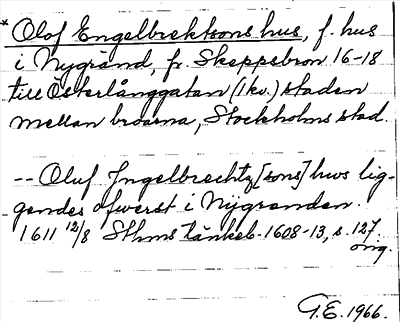 * Olof Engelbrektsons hus, f. hus
i Nygränd, fr. Skeppsbron 16-18
till Österlånggatan (1 kv.) staden
mellan broarna, Stockholms stad.
-- Oluf Ingelbrechtz [sons] hws lig-
gendes öfwerst i Nygranden.
1611 12/8 Sthms tänkeb. 1608-13, s. 127.
orig.
G.E. 1966.